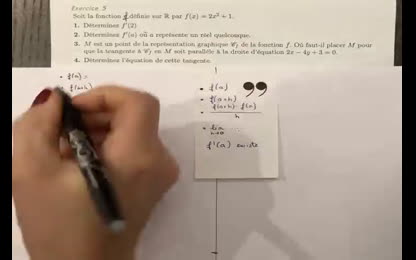 Exercice 5
Soit la fonction f définie sur ℝ par f(x) = 2x² + 1.
1. Déterminez f'(2)
2. Déterminez f'(a) où a représente un réel quelconque.
3. M est un point de la représentation graphique 𝒞f de la fonction f. Où faut-il placer M pour
que la teangente à 𝒞f en M soit parallèle à la droite d'équation 2x − 4y + 3 = 0.
4. Déterminez l'équation de cette tangente.
• f(a) =
• f(a+h)
• f(a)
• f(a+h)
• f(a+h) - f(a)
h
• lim
h→0
f'(a) existe